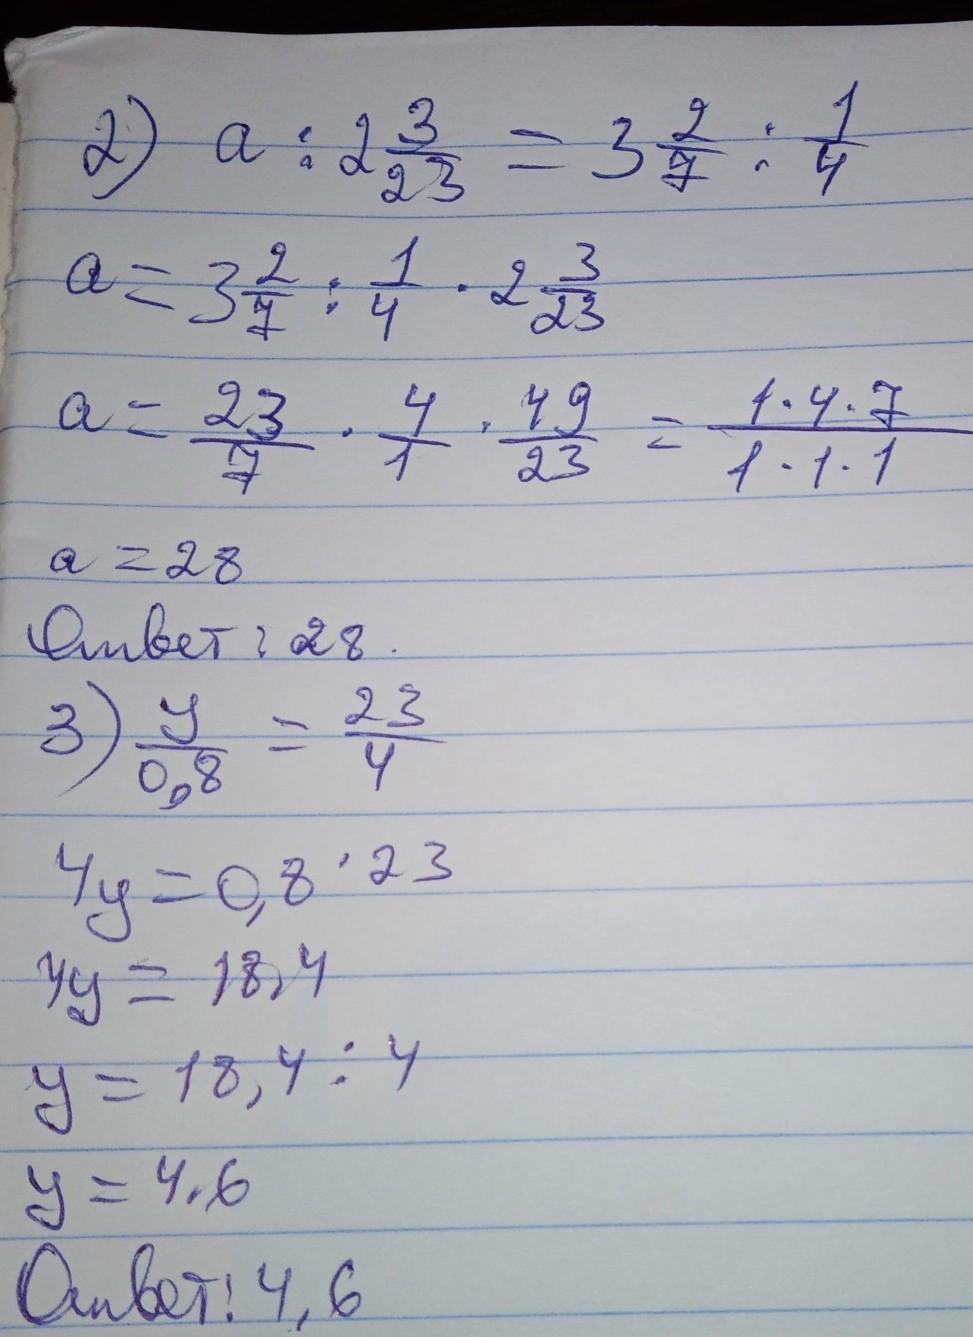 2) a : 2 3/23 = 3 2/7 : 1/4
a = 3 2/7 : 1/4 · 2 3/23
a = 23/7 · 4/1 · 49/23 = 1·4·7/1·1·1
a = 28
Ответ: 28.
3) y/0,8 = 23/4
4y = 0,8 · 23
4y = 18,4
y = 18,4 : 4
y = 4.6
Ответ: 4,6